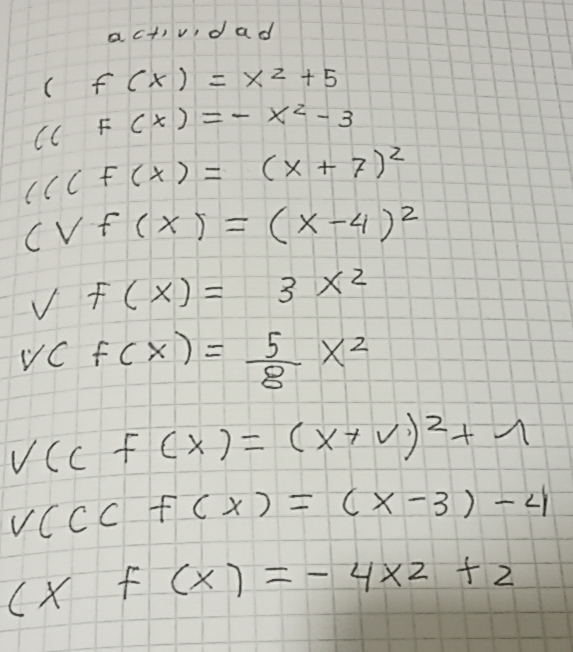 actividad
( f(x) = x² + 5
(( f(x) = - x² - 3
((( f(x) = (x + 7)²
(V f(x) = (x - 4)²
V f(x) = 3 x²
V( f(x) = 5/8 x²
V(( f(x) = (x + v)² + 1
V((( f(x) = (x - 3) - 4
(X f(x) = - 4x2 + 2